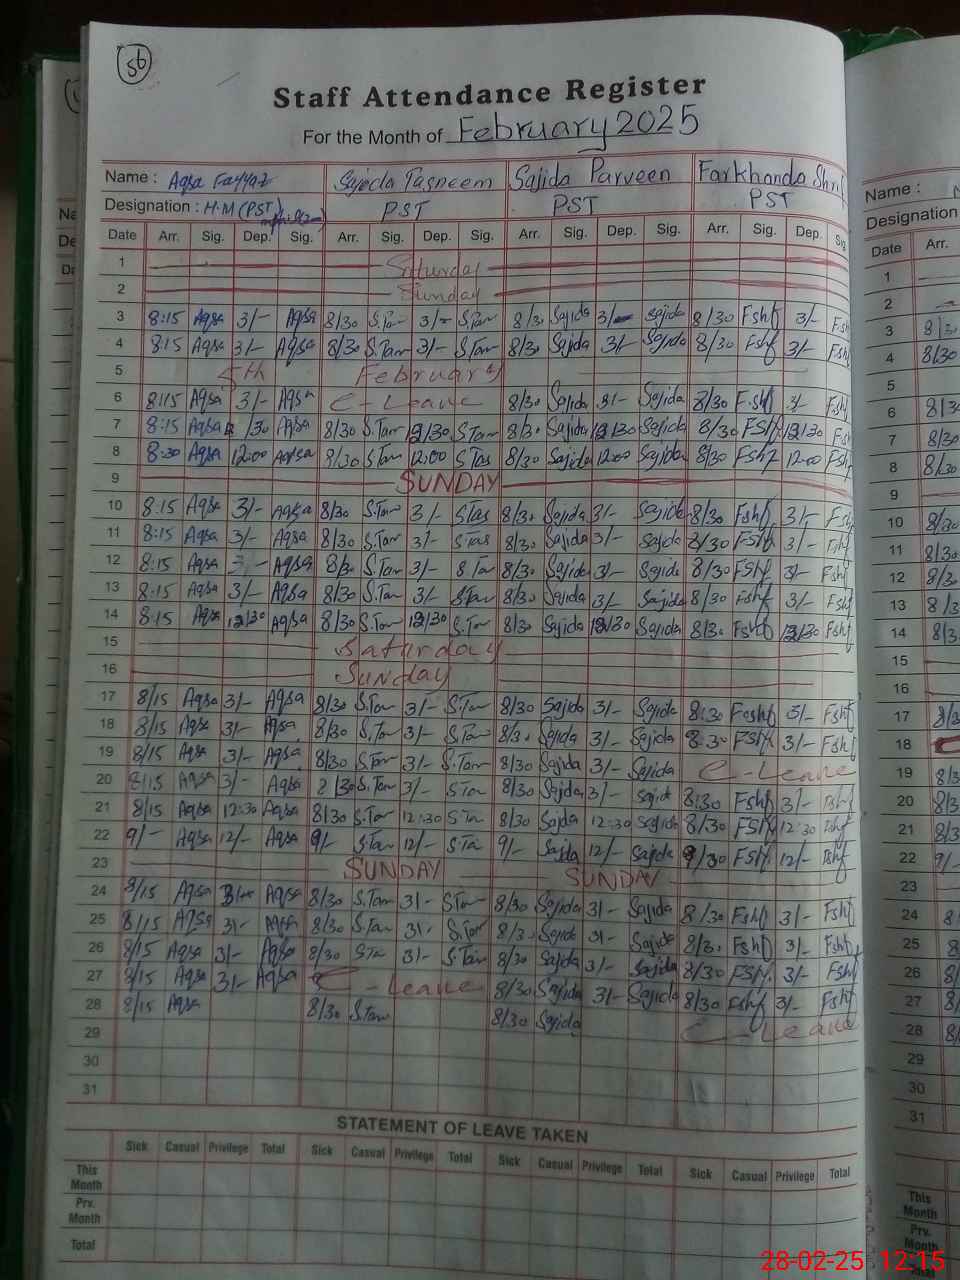 56
Staff Attendance Register
For the Month of February 2025
Name : Aqsa Fayyaz Sajida Tasneem Sajida Parveen Farkhanda Shrif
Designation : H.M (PST) PST PST PST
Date Arr. Sig. Dep. Sig. Arr. Sig. Dep. Sig. Arr. Sig. Dep. Sig. Arr. Sig. Dep. Sig.
1 Saturday
2 Sunday
3 8:15 Aqsa 3/- Aqsa 8/30 S.Tan 3/- S.Tan 8/30 Sajida 3/- Sajida 8/30 Fshf 3/- Fshf
4 8:15 Aqsa 3/- Aqsa 8/30 S.Tan 3/- S.Tan 8/30 Sajida 3/- Sajida 8/30 Fshf 3/- Fshf
5 5th February
6 8:15 Aqsa 3/- Aqsa C-Leave 8/30 Sajida 3/- Sajida 8/30 Fshf 3/- Fshf
7 8:15 Aqsa /30 Aqsa 8/30 S.Tan 12/30 S.Tan 8/30 Sajida 12/30 Sajida 8/30 Fshf 12/30 Fshf
8 8:30 Aqsa 12:00 Aqsa 8/30 S.Tan 12:00 S.Tas 8/30 Sajida 12:00 Sajida 8/30 Fshf 12:00 Fshf
9 SUNDAY
10 8:15 Aqsa 3/- Aqsa 8/30 S.Tan 3/- S.Tas 8/30 Sajida 3/- Sajida 8/30 Fshf 3/- Fshf
11 8:15 Aqsa 3/- Aqsa 8/30 S.Tan 3/- S.Tas 8/30 Sajida 3/- Sajida 8/30 Fshf 3/- Fshf
12 8:15 Aqsa 3/- Aqsa 8/30 S.Tan 3/- S.Tan 8/30 Sajida 3/- Sajida 8/30 Fshf 3/- Fshf
13 8:15 Aqsa 3/- Aqsa 8/30 S.Tan 3/- S.Tan 8/30 Sajida 3/- Sajida 8/30 Fshf 3/- Fshf
14 8:15 Aqsa 12/30 Aqsa 8/30 S.Tan 12/30 S.Tan 8/30 Sajida 12/30 Sajida 8/30 Fshf 12/30 Fshf
15 Saturday
16 Sunday
17 8/15 Aqsa 3/- Aqsa 8/30 S.Tan 3/- S.Tan 8/30 Sajida 3/- Sajida 8:30 Fshf 3/- Fshf
18 8/15 Aqsa 3/- Aqsa 8/30 S.Tan 3/- S.Tan 8/30 Sajida 3/- Sajida 8:30 Fshf 3/- Fshf
19 8/15 Aqsa 3/- Aqsa 8/30 S.Tan 3/- S.Tan 8/30 Sajida 3/- Sajida C-Leave
20 8/15 Aqsa 3/- Aqsa 8/30 S.Tan 3/- S.Tan 8/30 Sajida 3/- Sajida 8:30 Fshf 3/- Fshf
21 8/15 Aqsa 12:30 Aqsa 8/30 S.Tan 12:30 S.Tan 8/30 Sajida 12:30 Sajida 8/30 Fshf 12:30 Fshf
22 9/- Aqsa 12/- Aqsa 9/- S.Tan 12/- S.Tan 9/- Sajida 12/- Sajida /30 Fshf 12/- Fshf
23 SUNDAY SUNDAY
24 8/15 Aqsa 3/- Aqsa 8/30 S.Tan 3/- S.Tan 8/30 Sajida 3/- Sajida 8/30 Fshf 3/- Fshf
25 8/15 Aqsa 3/- Aqsa 8/30 S.Tan 3/- S.Tan 8/30 Sajida 3/- Sajida 8/30 Fshf 3/- Fshf
26 8/15 Aqsa 3/- Aqsa 8/30 S.Tan 3/- S.Tan 8/30 Sajida 3/- Sajida 8/30 Fshf 3/- Fshf
27 8/15 Aqsa 3/- Aqsa C-Leave 8/30 Sajida 3/- Sajida 8/30 Fshf 3/- Fshf
28 8/15 Aqsa 8/30 S.Tan 8/30 Sajida C-Leave
29
30
31
STATEMENT OF LEAVE TAKEN
Sick Casual Privilege Total Sick Casual Privilege Total Sick Casual Privilege Total Sick Casual Privilege Total
This Month
Prv. Month
Total
Name :
Designation
Date Arr.
1
2
3 8/30
4 8/30
5
6 8/30
7 8/30
8 8/30
9
10 8/30
11 8/30
12 8/30
13 8/30
14 8/30
15
16
17
18
19
20
21
22 9/-
23
24
25
26
27
28
29
30
31
This Month
Prv. Month
Total
28-02-25 12:15